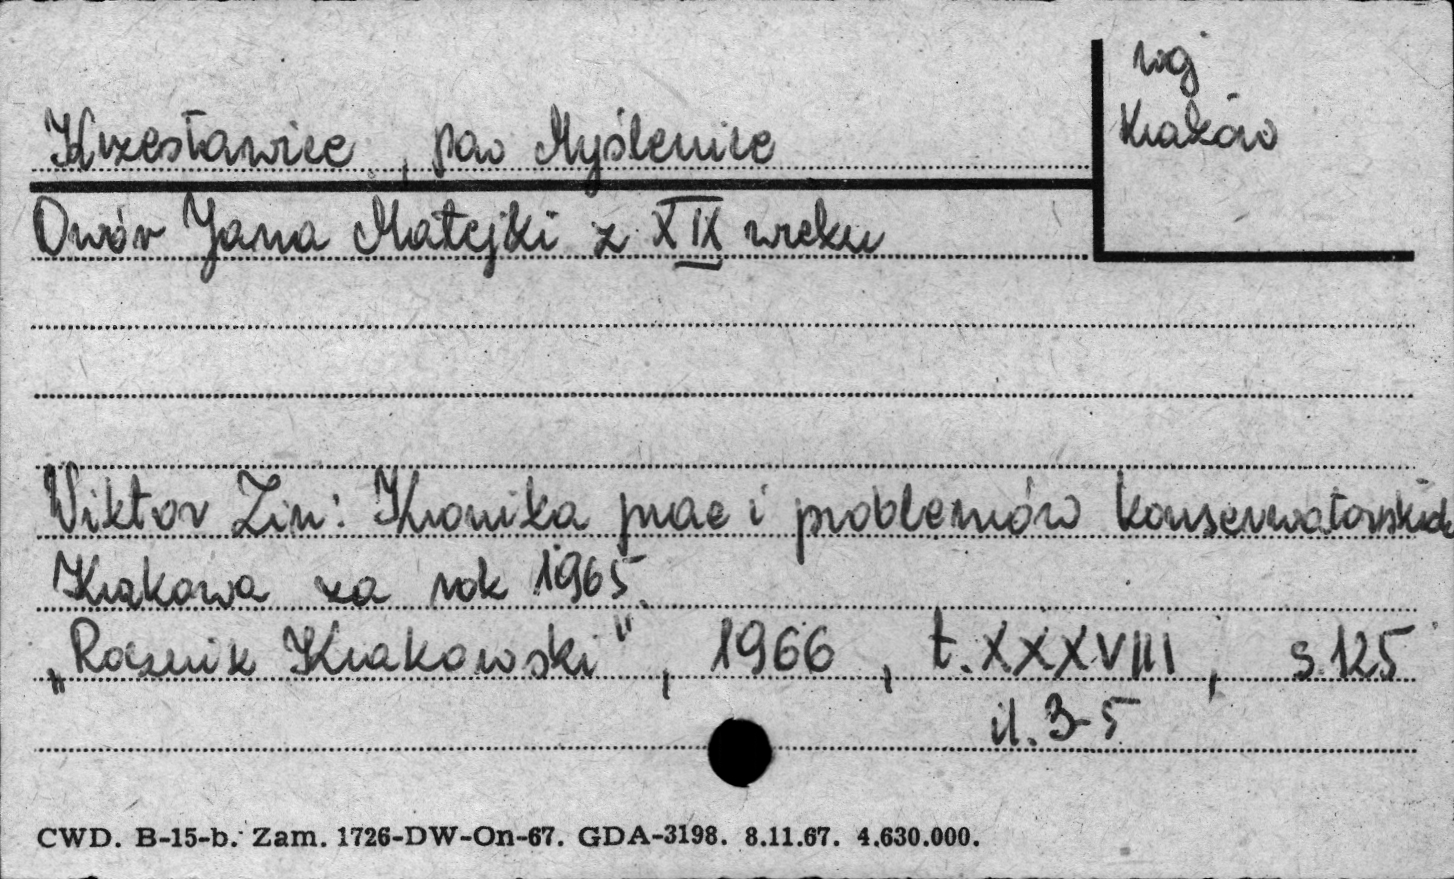 woj
Kraków
Krzesławice, pow Myślenice
Dwór Jana Matejki z XIX wieku
Wiktor Zin: Kronika prac i problemów konserwatorskich
Krakowa za rok 1965.
„Rocznik Krakowski", 1966, t. XXXVIII, s. 125
il. 3-5
CWD. B-15-b. Zam. 1726-DW-On-67. GDA-3198. 8.11.67. 4.630.000.